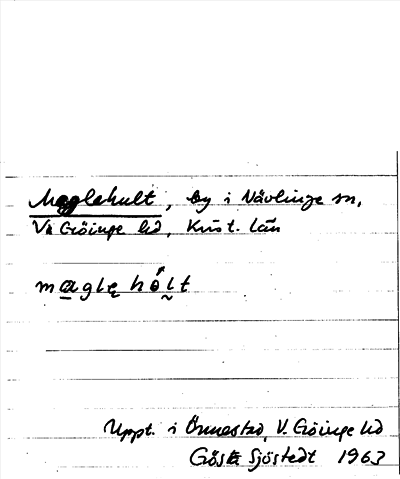 Maglehult, by i Nävlinge sn,
V. Göinge hd, Krist. län
maglę hólt
Uppt. i Önnestad, V. Göinge hd
Gösta Sjöstedt 1963